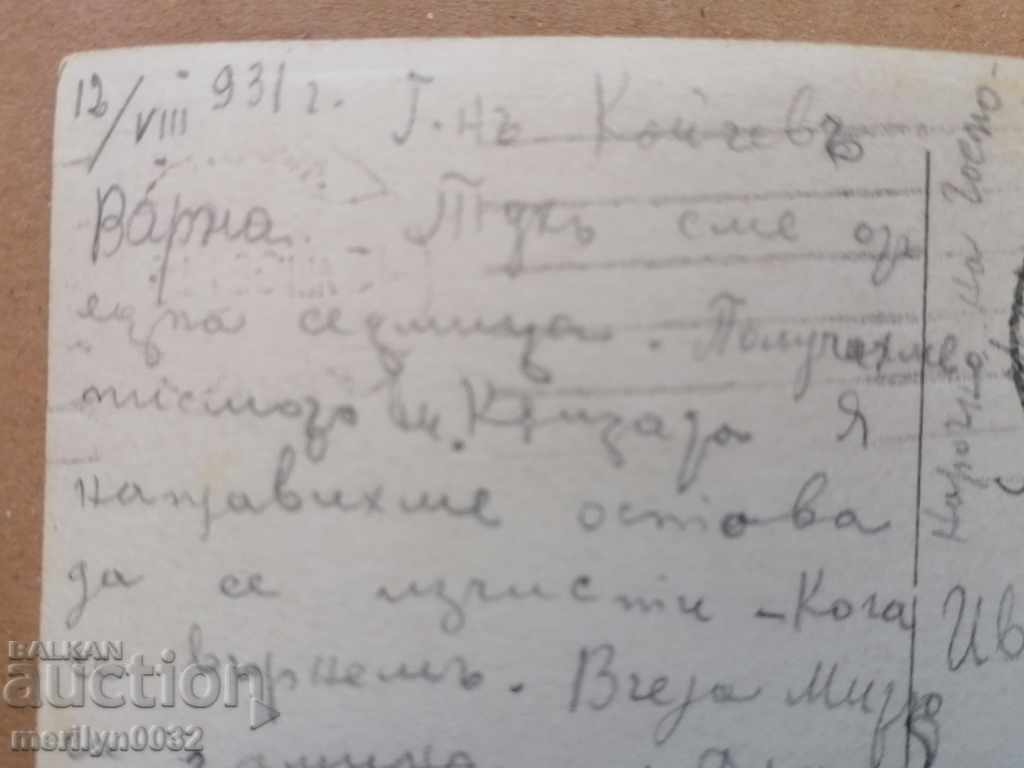 12/VIII 931 г. Г.нъ Койчевъ
Варна. Тукъ сме отъ
една седмица. Получихме
писмото и. Къщата Я
направихме остава
да се изчисти – Кога
се върнемъ. Вчера Мит
се замина
Нарочно на Госпо-
Ив
BALKAN
auction
merilyn0032